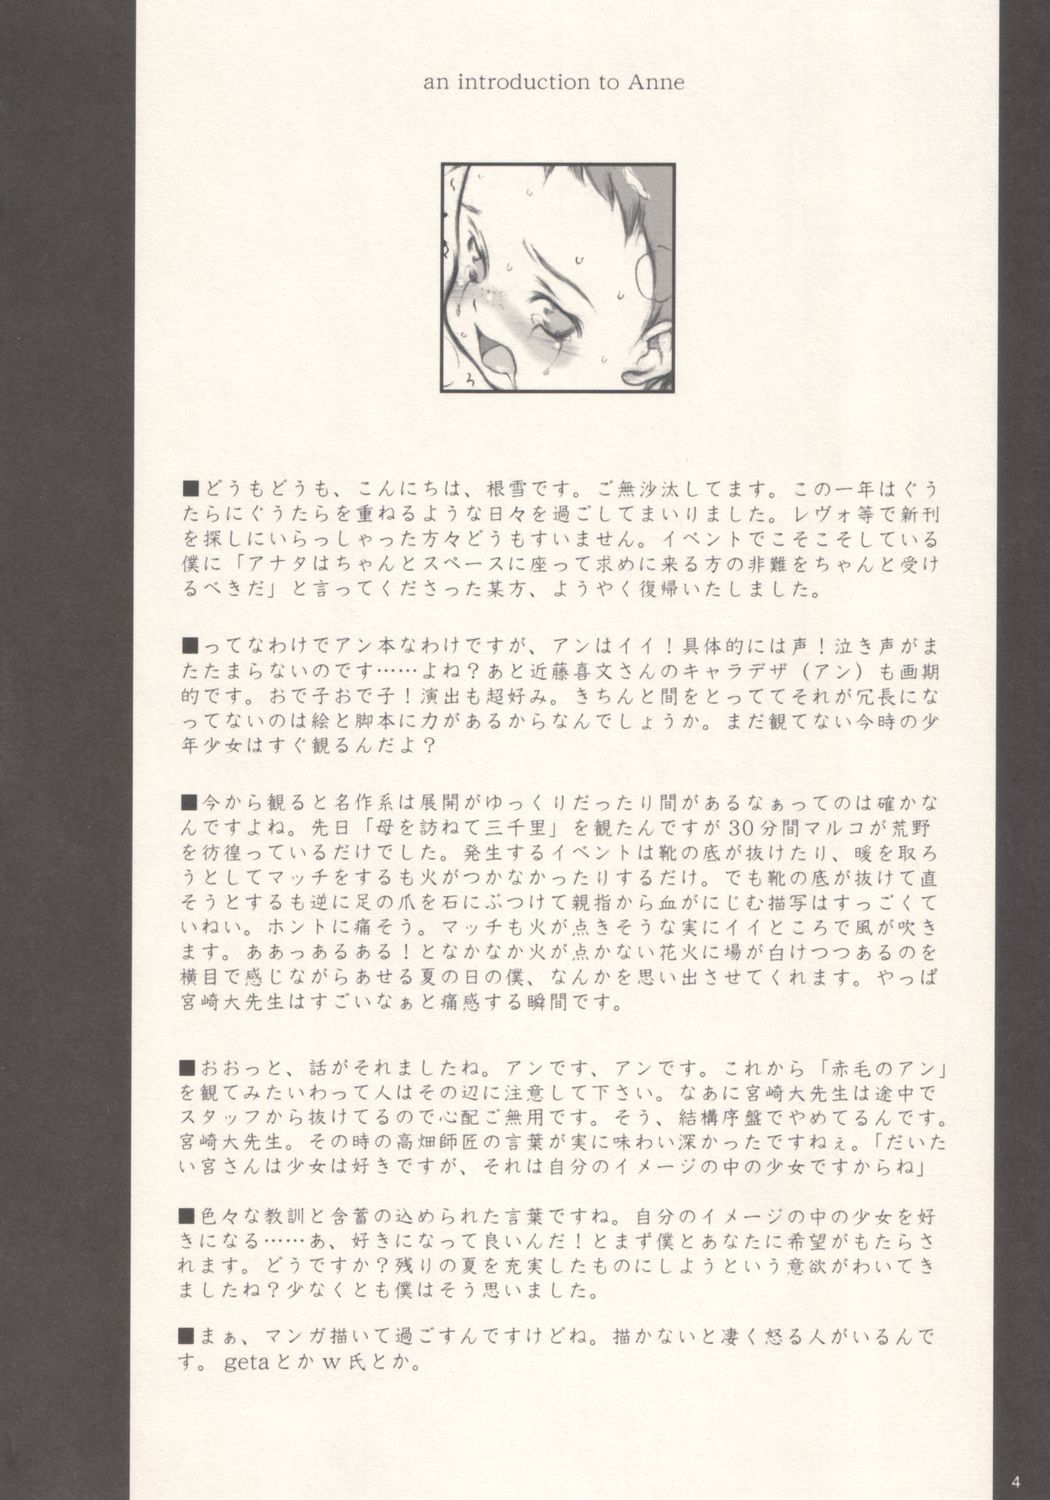 an introduction to Anne
■どうもどうも、こんにちは、根雪です。ご無沙汰してます。この一年はぐう
たらにぐうたらを重ねるような日々を過ごしてまいりました。レヴォ等で新刊
を探しにいらっしゃった方々どうもすいません。イベントでこそこそしている
僕に「アナタはちゃんとスペースに座って求めに来る方の非難をちゃんと受け
るべきだ」と言ってくださった某方、ようやく復帰いたしました。
■ってなわけでアン本なわけですが、アンはイイ！具体的には声！泣き声がま
たたまらないのです……よね？あと近藤喜文さんのキャラデザ（アン）も画期
的です。おで子おで子！演出も超好み。きちんと間をとっててそれが冗長にな
ってないのは絵と脚本に力があるからなんでしょうか。まだ観てない今時の少
年少女はすぐ観るんだよ？
■今から観ると名作系は展開がゆっくりだったり間があるなぁってのは確かな
んですよね。先日「母を訪ねて三千里」を観たんですが30分間マルコが荒野
を彷徨っているだけでした。発生するイベントは靴の底が抜けたり、暖を取ろ
うとしてマッチをするも火がつかなかったりするだけ。でも靴の底が抜けて直
そうとするも逆に足の爪を石にぶつけて親指から血がにじむ描写はすっごくて
いねい。ホントに痛そう。マッチも火が点きそうな実にイイところで風が吹き
ます。ああっあるある！となかなか火が点かない花火に場が白けつつあるのを
横目で感じながらあせる夏の日の僕、なんかを思い出させてくれます。やっぱ
宮崎大先生はすごいなぁと痛感する瞬間です。
■おおっと、話がそれましたね。アンです、アンです。これから「赤毛のアン」
を観てみたいわって人はその辺に注意して下さい。なあに宮崎大先生は途中で
スタッフから抜けてるので心配ご無用です。そう、結構序盤でやめてるんです。
宮崎大先生。その時の高畑師匠の言葉が実に味わい深かったですねぇ。「だいた
い宮さんは少女は好きですが、それは自分のイメージの中の少女ですからね」
■色々な教訓と含蓄の込められた言葉ですね。自分のイメージの中の少女を好
きになる……あ、好きになって良いんだ！とまず僕とあなたに希望がもたらさ
れます。どうですか？残りの夏を充実したものにしようという意欲がわいてき
ましたね？少なくとも僕はそう思いました。
■まぁ、マンガ描いて過ごすんですけどね。描かないと凄く怒る人がいるんで
す。getaとかw氏とか。
4